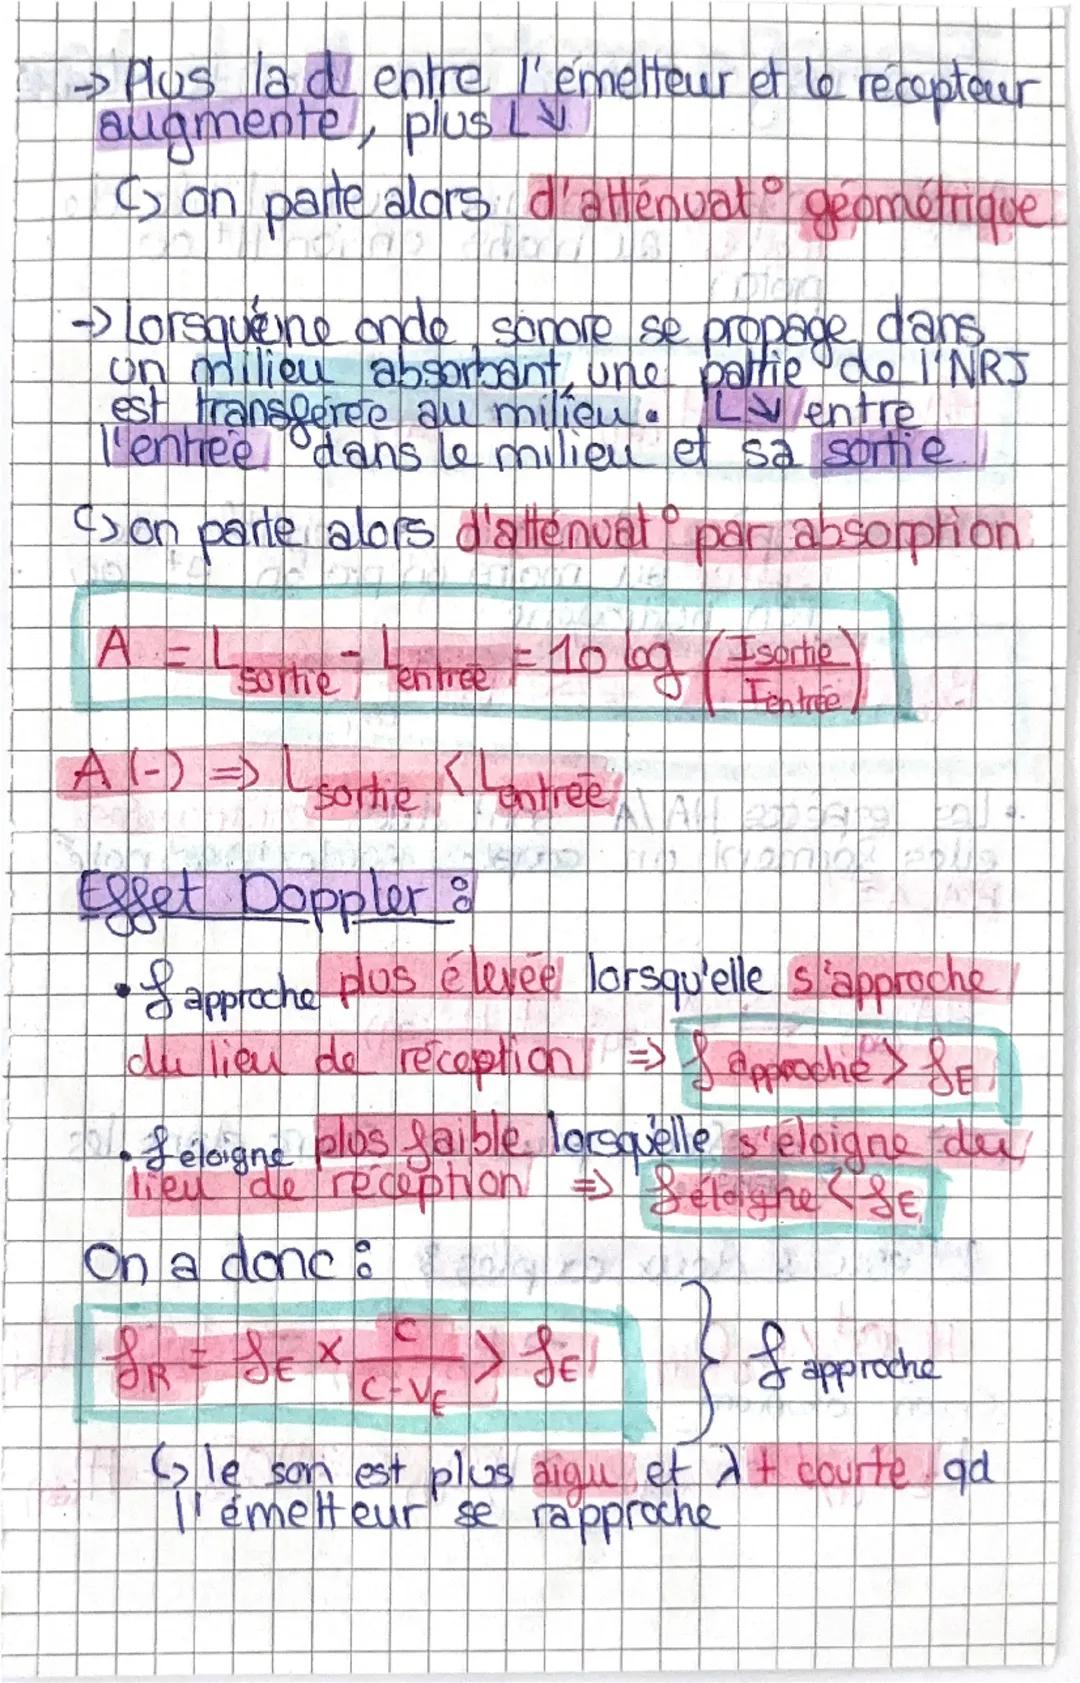 → Plus la d entre l'émetteur et le récepteur
augmente, plus L ↘
↳ on parle alors d'atténuat° géométrique
→ Lorsqu'une onde sonore se propage dans
un milieu absorbant, une partie de l'NRJ
est transférée au milieu. L ↘ entre
l'entrée dans le milieu et sa sortie.
↳ on parle alors d'atténuat° par absorption
A = L sortie - L entrée = 10 log (I sortie / I entrée)
A (-) ⇒ L sortie < L entrée
Effet Doppler :
• f approche plus élevée lorsqu'elle s'approche
du lieu de réception ⇒ f approche > fE
• f éloigne plus faible lorsqu'elle s'éloigne du
lieu de réception ⇒ f éloigne < fE
On a donc :
fR = fE × c / (c - vE) > fE } f approche
↳ le son est plus aigu et λ + courte qd
l'émetteur se rapproche